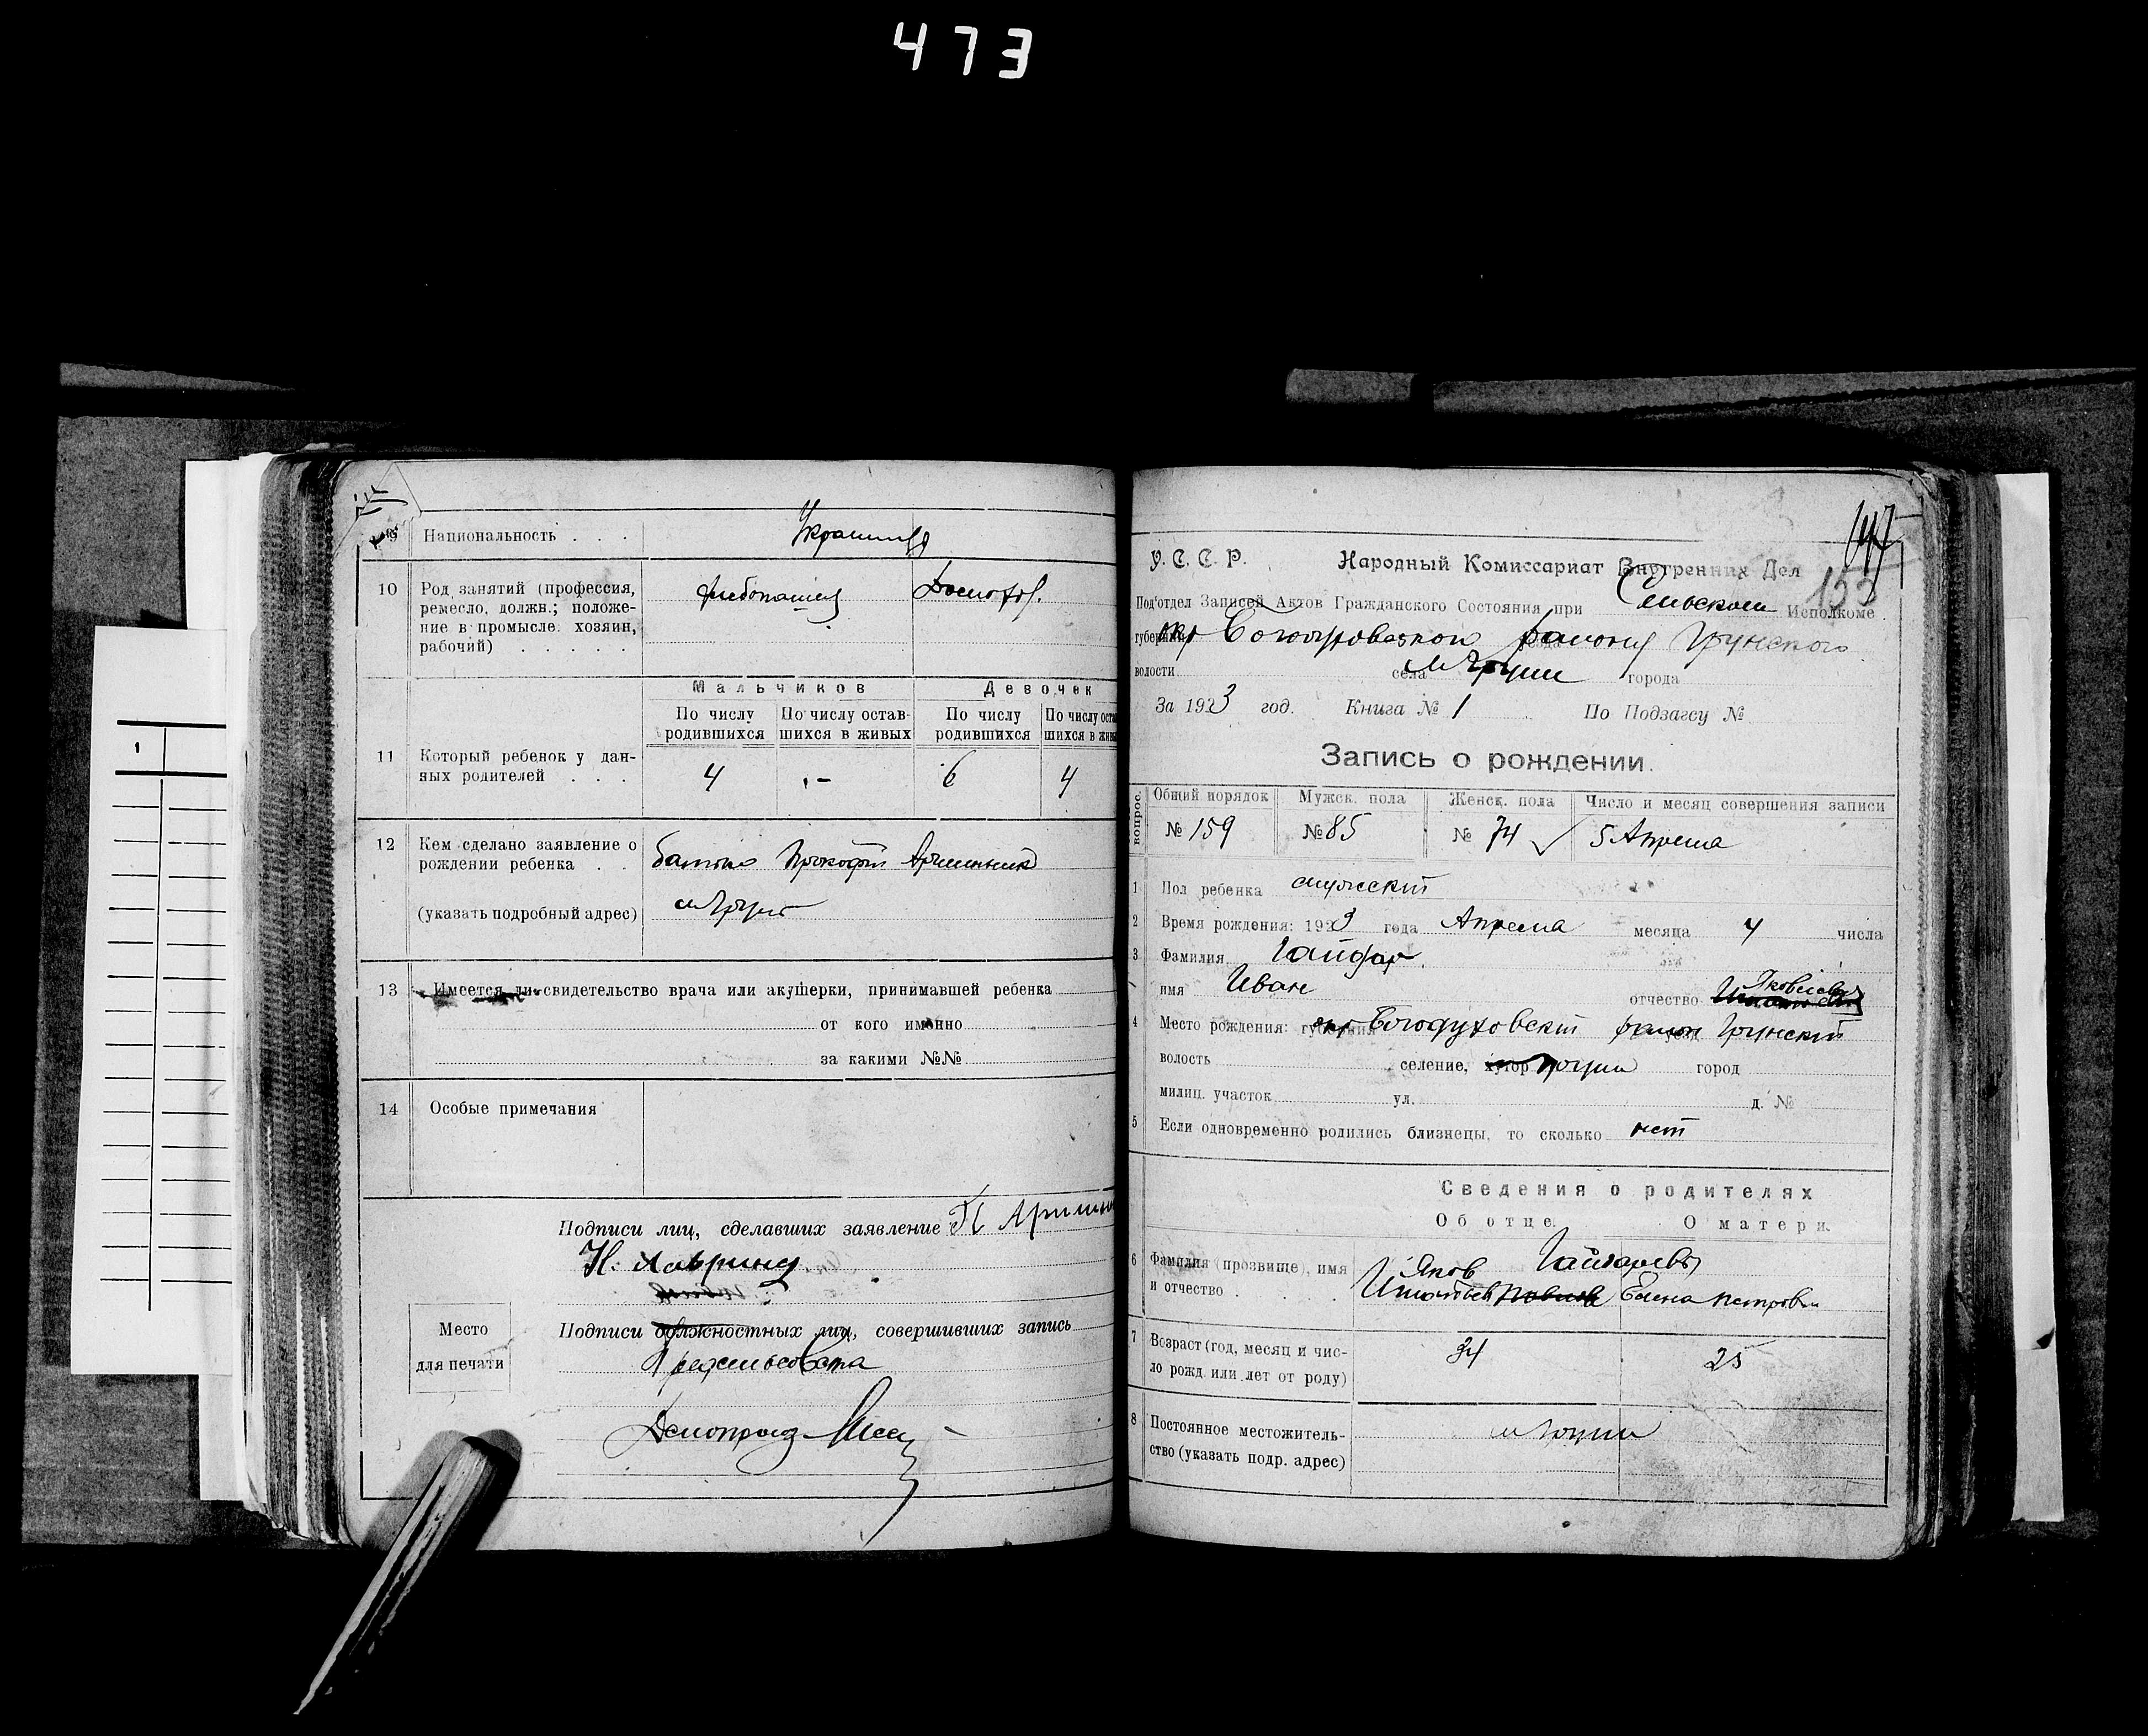 473
9 Национальность . . . Украинцы
10 Род занятий (профессия, хлебопашец Домохоз.
ремесло, должн.; положе-
ние в промысле. хозяин,
рабочий) . . . . .
Мальчиков Девочек
По числу родившихся По числу остав-шихся в живых По числу родившихся По числу оста шихся в живы
11 Который ребенок у дан-
ных родителей . . . 4 - 6 4
12 Кем сделано заявление о
рождении ребенка . . батько Прокофій Аршинник
(указать подробный адрес) м Грунь
13 Имеется ли свидетельство врача или акушерки, принимавшей ребенка
от кого именно
за какими №№
14 Особые примечания
Подписи лиц, сделавших заявление П Аршин
Н.
Место
для печати
Подписи должностных лиц, совершивших запись
Предсельсовета
Делопроиз
147
155
У. С. С. Р. Народный Комиссариат Внутренних Дел
Под'отдел Записей Актов Гражданского Состояния при Сельском Исполкоме
губернии окр Богодуховской уезда району Грунского
волости села м Груни города
За 1923 год. Книга № 1 По Подзагсу №
Запись о рождении.
вопрос. Общий порядок Мужск. пола Женск. пола Число и месяц совершения записи
№ 159 № 85 № 74 5 Апреля
1 Пол ребенка мужескій
2 Время рождения: 1923 года Апреля месяца 4 числа
3 Фамилия Гайдар
имя Иван отчество Яковлев
4 Место рождения: губерния окр Богодуховскій уезд район Грунскій
волость селение, хутор Груни город
милиц. участок ул. д. №
5 Если одновременно родились близнецы, то сколько нет
Сведения о родителях
Об отце. О матери.
6 Фамилия (прозвище), имя Яков Гайдаревы
и отчество . . . . Игнатьев Елена Петровн
7 Возраст (год, месяц и чис- 34 25
ло рожд. или лет от роду)
8 Постоянное местожитель- м Груни
ство (указать подр. адрес)
1